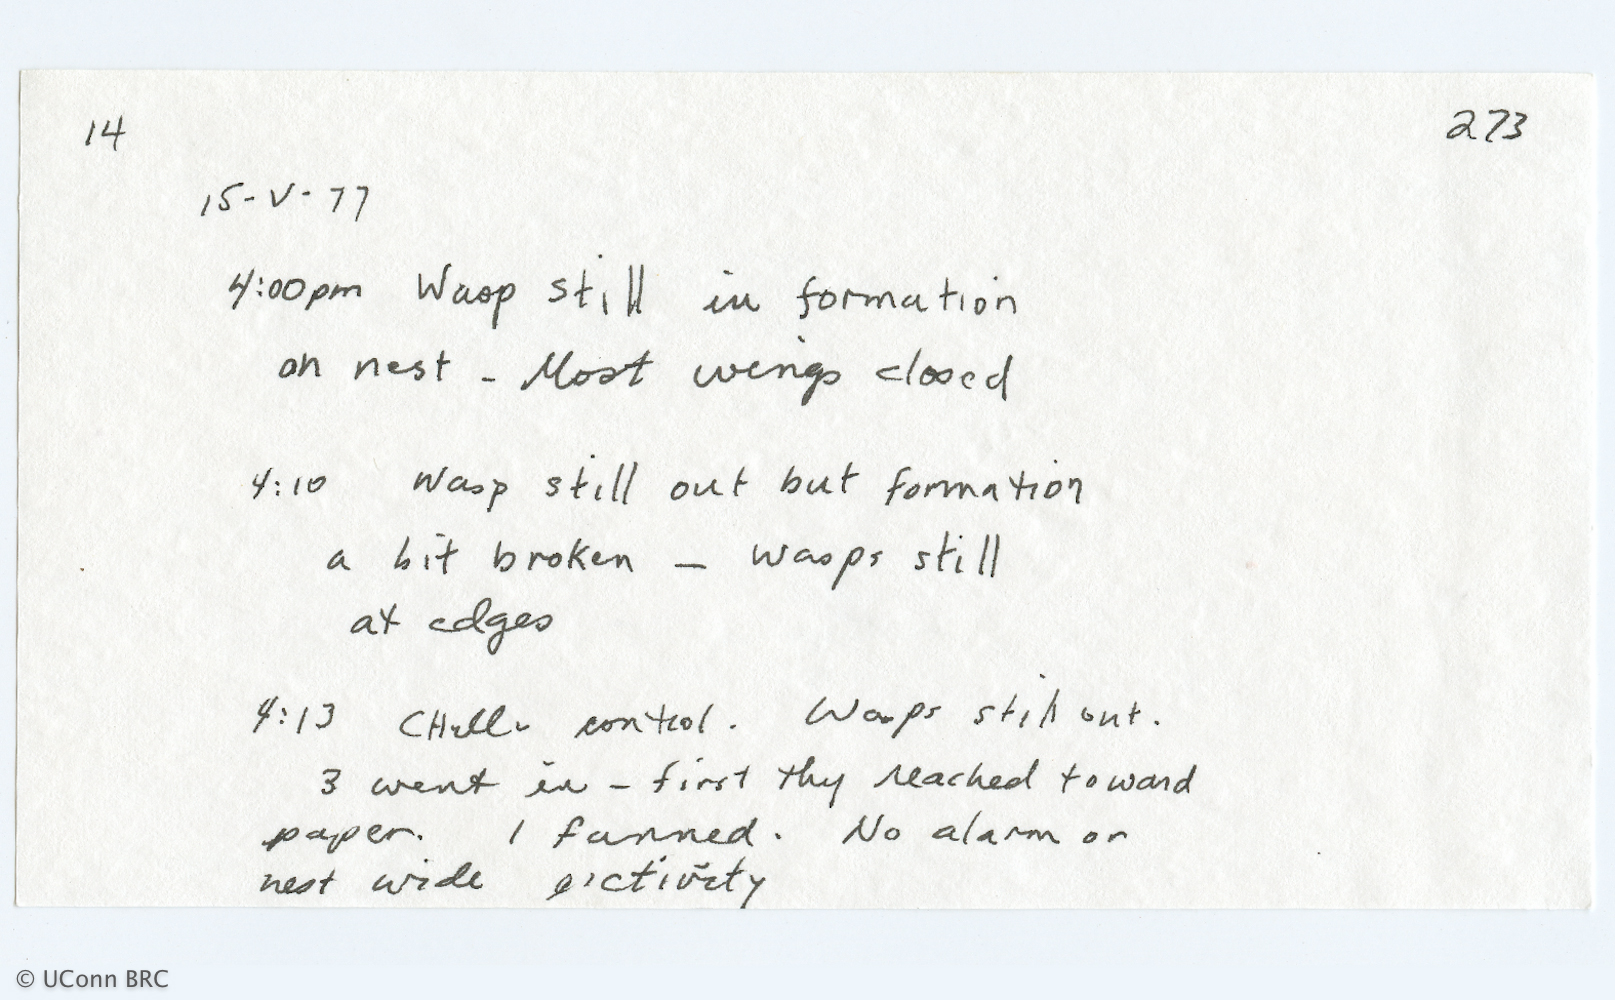 14 273
15-V-77
4:00pm Wasp still in formation
on nest - Most wings closed
4:10 Wasp still out but formation
a bit broken – wasps still
at edges
4:13 control. Wasps still out.
3 went in – first thy reached toward
paper. 1 fanned. No alarm or
nest wide activity
© UConn BRC